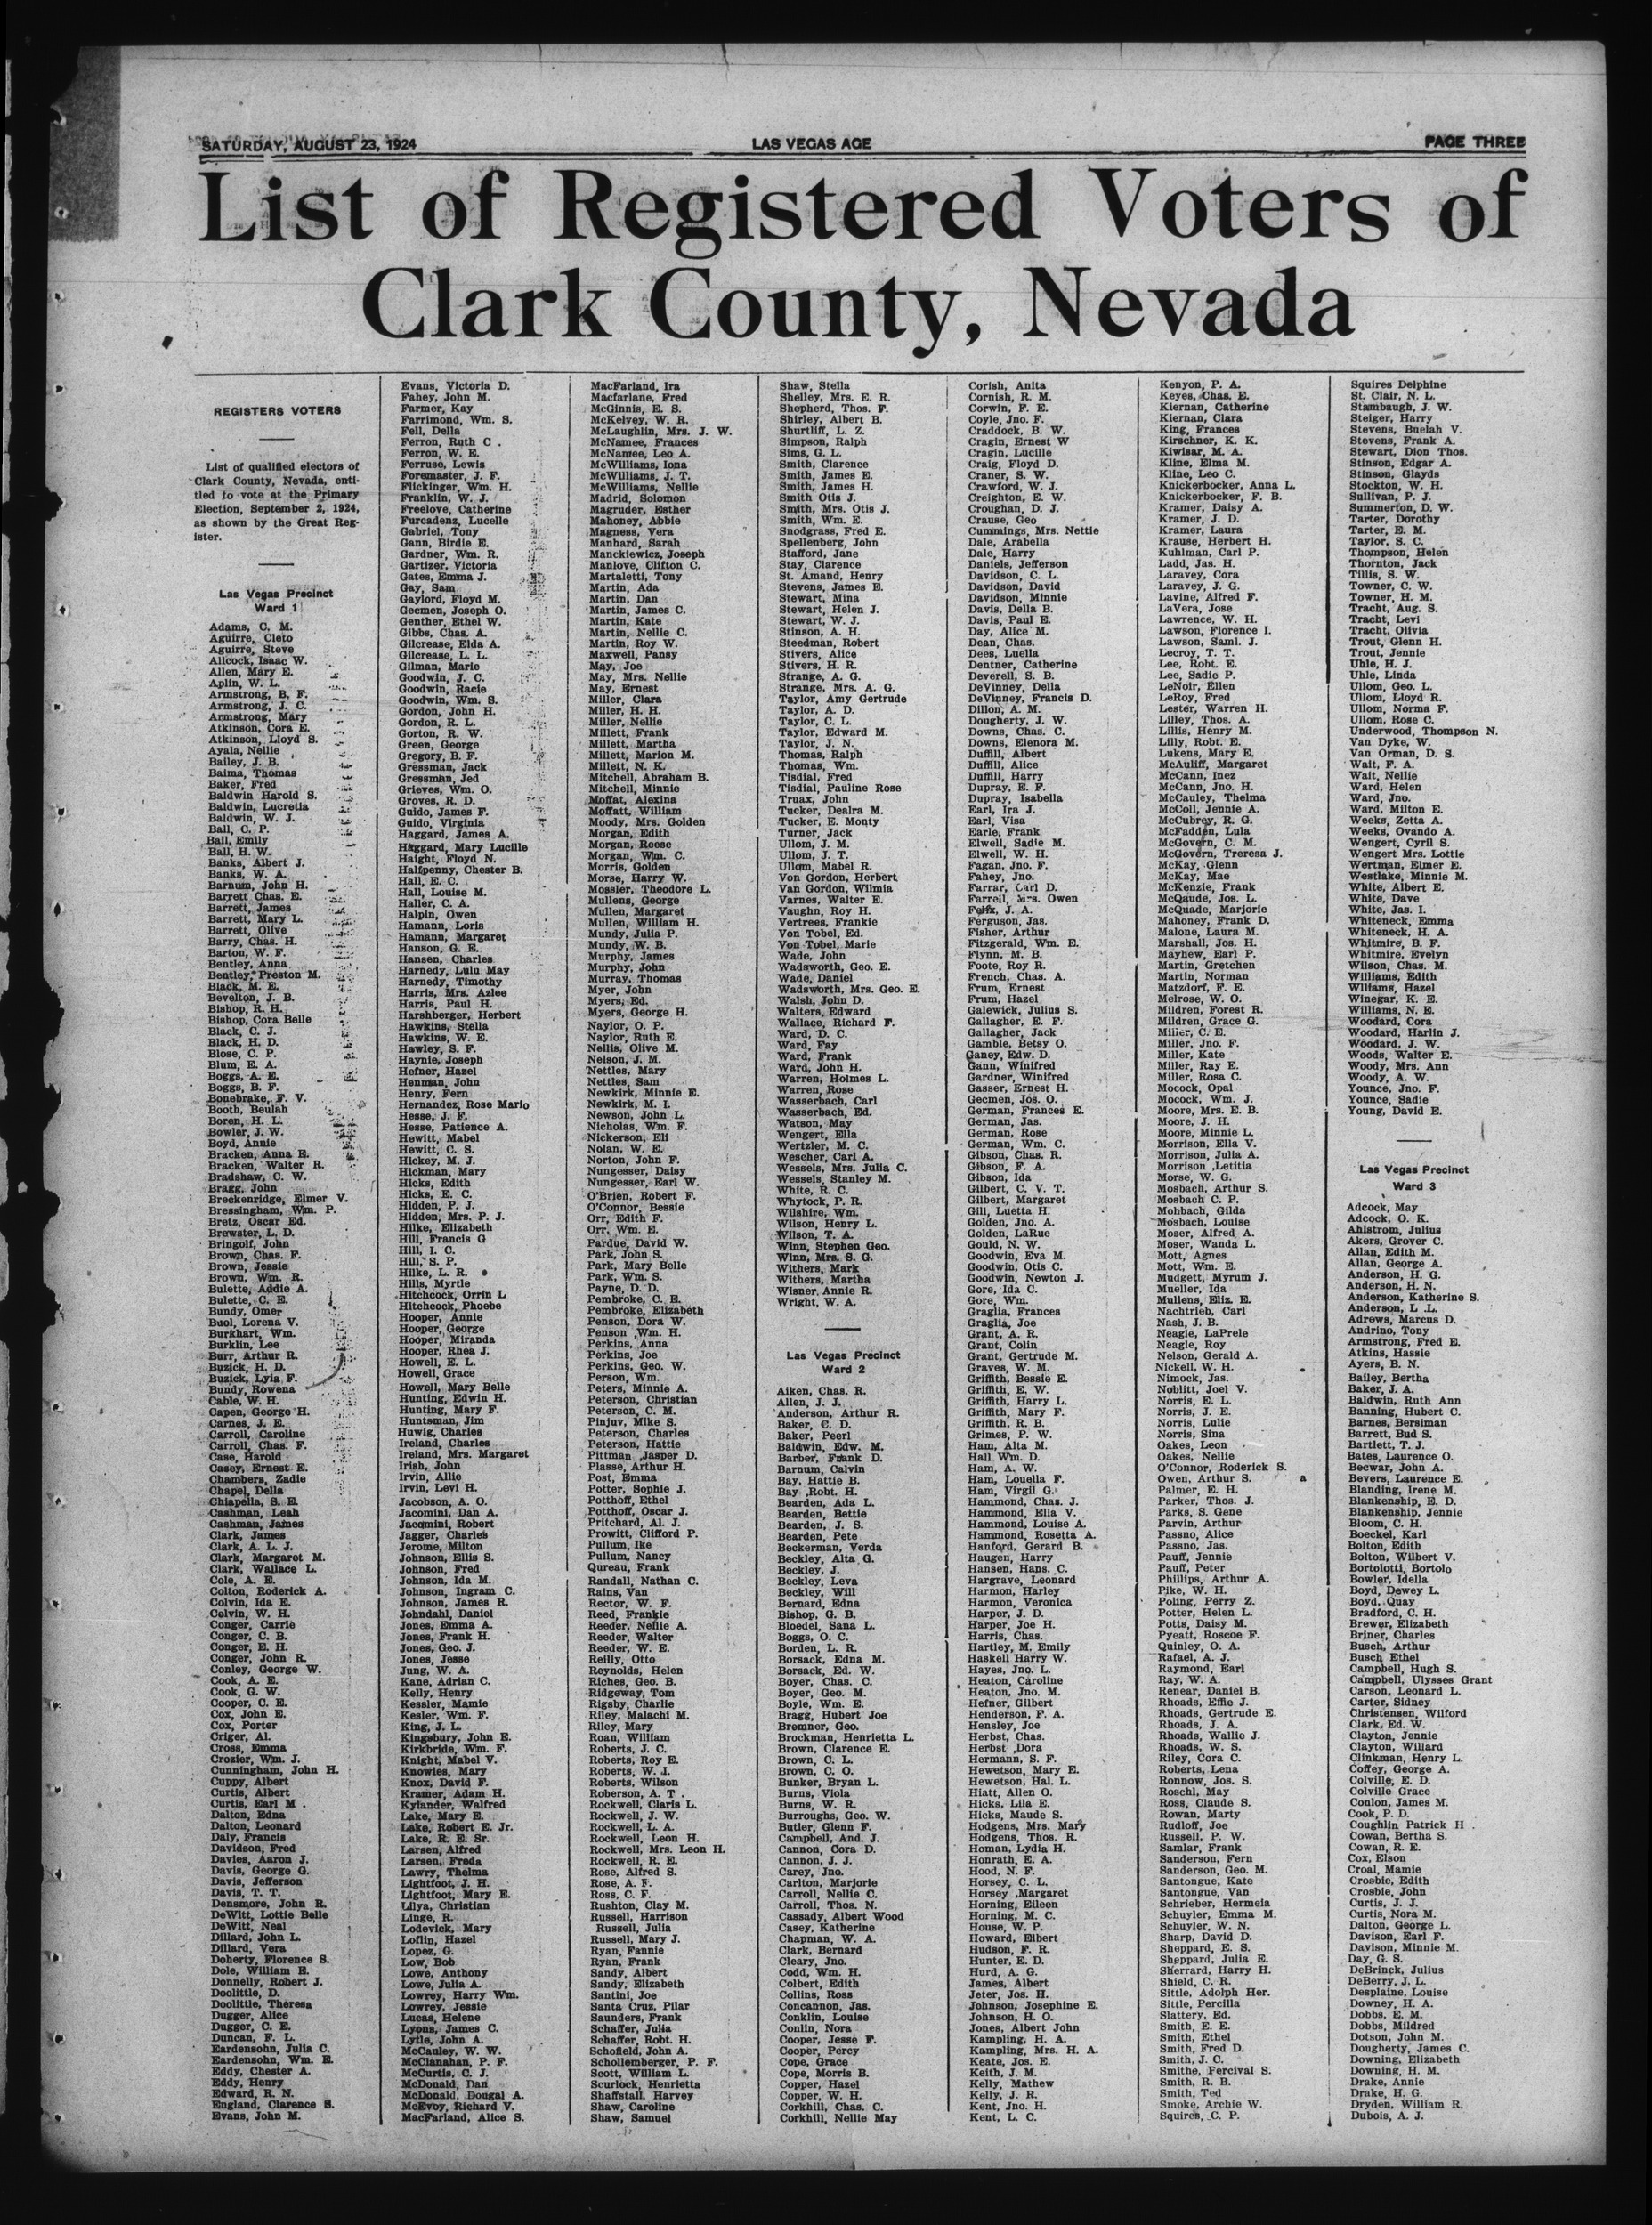 SATURDAY, AUGUST 23, 1924
LAS VEGAS AGE
PAGE THREE
List of Registered Voters of
Clark County, Nevada
REGISTERS VOTERS
List of qualified electors of
Clark County, Nevada, enti-
tled to vote at the Primary
Election, September 2, 1924,
as shown by the Great Reg-
ister.
Las Vegas Precinct
Ward 1
Adams, C. M.
Aguirre, Cleto
Aguirre, Steve
Allcock, Isaac W.
Allen, Mary E.
Aplin, W. L.
Armstrong, B. F.
Armstrong, J. C.
Armstrong, Mary
Atkinson, Cora E.
Atkinson, Lloyd S.
Ayala, Nellie
Bailey, J. B.
Balma, Thomas
Baker, Fred
Baldwin Harold S.
Baldwin, Lucretia
Baldwin, W. J.
Ball, C. P.
Ball, Emily
Ball, H. W.
Banks, Albert J.
Banks, W. A.
Barnum, John H.
Barrett Chas. E.
Barrett, James
Barrett, Mary L.
Barrett, Olive
Barry, Chas. H.
Barton, W. F.
Bentley, Anna
Bentley, Preston M.
Black, M. E.
Bevelton, J. B.
Bishop, R. H.
Bishop, Cora Belle
Black, C. J.
Black, H. D.
Blose, C. P.
Blum, E. A.
Boggs, A. E.
Boggs, B. F.
Bonebrake, F. V.
Booth, Beulah
Boren, H. L.
Bowler, J. W.
Boyd, Annie
Bracken, Anna E.
Bracken, Walter R.
Bradshaw, C. W.
Bragg, John
Breckenridge, Elmer V.
Bressingham, Wm. P.
Bretz, Oscar Ed.
Brewster, L. D.
Bringolf, John
Brown, Chas. F.
Brown, Jessie
Brown, Wm. R.
Bulette, Addie A.
Bulette, C. E.
Bundy, Omer
Buol, Lorena V.
Burkhart, Wm.
Burklin, Lee
Burr, Arthur R.
Buzick, H. D.
Buzick, Lyia F.
Bundy, Rowena
Cable, W. H.
Capen, George H.
Carnes, J. E.
Carroll, Caroline
Carroll, Chas. F.
Case, Harold
Casey, Ernest E.
Chambers, Zadie
Chapel, Della
Chiapella, S. E.
Cashman, Leah
Cashman, James
Clark, James
Clark, A. L. J.
Clark, Margaret M.
Clark, Wallace L.
Cole, A. E.
Colton, Roderick A.
Colvin, Ida E.
Colvin, W. H.
Conger, Carrie
Conger, C. B.
Conger, E. H.
Conger, John R.
Conley, George W.
Cook, A. E.
Cook, G. W.
Cooper, C. E.
Cox, John E.
Cox, Porter
Criger, Al.
Cross, Emma
Crozier, Wm. J.
Cunningham, John H.
Cuppy, Albert
Curtis, Albert
Curtis, Earl M .
Dalton, Edna
Dalton, Leonard
Daly, Francis
Davidson, Fred
Davies, Aaron J.
Davis, George G.
Davis, Jefferson
Davis, T. T.
Densmore, John R.
DeWitt, Lottie Belle
DeWitt, Neal
Dillard, John L.
Dillard, Vera
Doherty, Florence S.
Dole, William E.
Donnelly, Robert J.
Doolittle, D.
Doolittle, Theresa
Dugger, Alice
Dugger, C. E.
Duncan, F. L.
Eardensohn, Julia C.
Eardensohn, Wm. E.
Eddy, Chester A.
Eddy, Henry
Edward, R. N.
England, Clarence S.
Evans, John M.
Evans, Victoria D.
Fahey, John M.
Farmer, Kay
Farrimond, Wm. S.
Fell, Della
Ferron, Ruth C .
Ferron, W. E.
Ferruse, Lewis
Foremaster, J. F.
Flickinger, Wm. H.
Franklin, W. J.
Freelove, Catherine
Furcadenz, Lucelle
Gabriel, Tony
Gann, Birdie E.
Gardner, Wm. R.
Gartizer, Victoria
Gates, Emma J.
Gay, Sam
Gaylord, Floyd M.
Gecmen, Joseph O.
Genther, Ethel W.
Gibbs, Chas. A.
Gilcrease, Elda A.
Gilcrease, L. L.
Gilman, Marie
Goodwin, J. C.
Goodwin, Racie
Goodwin, Wm. S.
Gordon, John H.
Gordon, R. L.
Gorton, R. W.
Green, George
Gregory, B. F.
Gressman, Jack
Gressman, Jed
Grieves, Wm. O.
Groves, R. D.
Guido, James F.
Guido, Virginia
Haggard, James A.
Haggard, Mary Lucille
Haight, Floyd N.
Halfpenny, Chester B.
Hall, E. C.
Hall, Louise M.
Haller, C. A.
Halpin, Owen
Hamann, Loris
Hamann, Margaret
Hanson, G. E.
Hansen, Charles
Harnedy, Lulu May
Harnedy, Timothy
Harris, Mrs. Azlee
Harris, Paul H.
Harshberger, Herbert
Hawkins, Stella
Hawkins, W. E.
Hawley, S. F.
Haynie, Joseph
Hefner, Hazel
Henman, John
Henry, Fern
Hernandez, Rose Mario
Hesse, J. F.
Hesse, Patience A.
Hewitt, Mabel
Hewitt, C. S.
Hickey, M. J.
Hickman, Mary
Hicks, Edith
Hicks, E. C.
Hidden, P. J.
Hidden, Mrs. P. J.
Hilke, Elizabeth
Hill, Francis G
Hill, I. C.
Hill, S. P.
Hilke, L. R.
Hills, Myrtle
Hitchcock, Orrin L
Hitchcock, Phoebe
Hooper, Annie
Hooper, George
Hooper, Miranda
Hooper, Rhea J.
Howell, E. L.
Howell, Grace
Howell, Mary Belle
Hunting, Edwin H.
Hunting, Mary F.
Huntsman, Jim
Huwig, Charles
Ireland, Charles
Ireland, Mrs. Margaret
Irish, John
Irvin, Allie
Irvin, Levi H.
Jacobson, A. O.
Jacomini, Dan A.
Jacomini, Robert
Jagger, Charles
Jerome, Milton
Johnson, Ellis S.
Johnson, Fred
Johnson, Ida M.
Johnson, Ingram C.
Johnson, James R.
Johndahl, Daniel
Jones, Emma A.
Jones, Frank H.
Jones, Geo. J.
Jones, Jesse
Jung, W. A.
Kane, Adrian C.
Kelly, Henry
Kessler, Mamie
Kesler, Wm. F.
King, J. L.
Kingsbury, John E.
Kirkbride, Wm. F.
Knight, Mabel V.
Knowles, Mary
Knox, David F.
Kramer, Adam H.
Kylander, Walfred
Lake, Mary E.
Lake, Robert E. Jr.
Lake, R. E. Sr.
Larsen, Alfred
Larsen, Freda
Lawry, Thelma
Lightfoot, J. H.
Lightfoot, Mary E.
Lilya, Christian
Linge, R.
Lodevick, Mary
Loflin, Hazel
Lopez, G.
Low, Bob
Lowe, Anthony
Lowe, Julia A.
Lowrey, Harry Wm.
Lowrey, Jessie
Lucas, Helene
Lyons, James C.
Lytle, John A.
McCauley, W. W.
McClanahan, P. F.
McCurtis, C. J.
McDonald, Dan
McDonald, Dougal A.
McEvoy, Richard V.
MacFarland, Alice S.
MacFarland, Ira
Macfarlane, Fred
McGinnis, E. S.
McKelvey, W. R.
McLaughlin, Mrs. J. W.
McNamee, Frances
McNamee, Leo A.
McWilliams, Iona
McWilliams, J. T.
McWilliams, Nellie
Madrid, Solomon
Magruder, Esther
Mahoney, Abbie
Magness, Vera
Manhard, Sarah
Manckiewicz, Joseph
Manlove, Clifton C.
Martaletti, Tony
Martin, Ada
Martin, Dan
Martin, James C.
Martin, Kate
Martin, Nellie C.
Martin, Roy W.
Maxwell, Pansy
May, Joe
May, Mrs. Nellie
May, Ernest
Miller, Clara
Miller, H. H.
Miller, Nellie
Millett, Frank
Millett, Martha
Millett, Marion M.
Millett, N. K.
Mitchell, Abraham B.
Mitchell, Minnie
Moffat, Alexina
Moffatt, William
Moody, Mrs. Golden
Morgan, Edith
Morgan, Reese
Morgan, Wm. C.
Morris, Golden
Morse, Harry W.
Mossler, Theodore L.
Mullens, George
Mullen, Margaret
Mullen, William H.
Mundy, Julia P.
Mundy, W. B.
Murphy, James
Murphy, John
Murray, Thomas
Myer, John
Myers, Ed.
Myers, George H.
Naylor, O. P.
Naylor, Ruth E.
Nellis, Olive M.
Nelson, J. M.
Nettles, Mary
Nettles, Sam
Newkirk, Minnie E.
Newkirk, M. I.
Newson, John L.
Nicholas, Wm. F.
Nickerson, Eli
Nolan, W. E.
Norton, John F.
Nungesser, Daisy
Nungesser, Earl W.
O'Brien, Robert F.
O'Connor, Bessie
Orr, Edith F.
Orr, Wm. E.
Pardue, David W.
Park, John S.
Park, Mary Belle
Park, Wm. S.
Payne, D. D.
Pembroke, C. E.
Pembroke, Elizabeth
Penson, Dora W.
Penson ,Wm. H.
Perkins, Anna
Perkins, Joe
Perkins, Geo. W.
Person, Wm.
Peters, Minnie A.
Peterson, Christian
Peterson, C. M.
Pinjuv, Mike S.
Peterson, Charles
Peterson, Hattie
Pittman ,Jasper D.
Plasse, Arthur H.
Post, Emma
Potter, Sophie J.
Potthoff, Ethel
Potthoff, Oscar J.
Pritchard, Al. J.
Prowitt, Clifford P.
Pullum, Ike
Pullum, Nancy
Qureau, Frank
Randall, Nathan C.
Rains, Van
Rector, W. F.
Reed, Frankie
Reeder, Nellie A.
Reeder, Walter
Reeder, W. E.
Reilly, Otto
Reynolds, Helen
Riches, Geo. B.
Ridgeway, Tom
Rigsby, Charlie
Riley, Malachi M.
Riley, Mary
Roan, William
Roberts, J. C.
Roberts, Roy E.
Roberts, W. J.
Roberts, Wilson
Roberson, A. T .
Rockwell, Claris L.
Rockwell, J. W.
Rockwell, L. A.
Rockwell, Leon H.
Rockwell, Mrs. Leon H.
Rockwell, R. E.
Rose, Alfred S.
Rose, A. F.
Ross, C. F.
Rushton, Clay M.
Russell, Harrison
Russell, Julia
Russell, Mary J.
Ryan, Fannie
Ryan, Frank
Sandy, Albert
Sandy, Elizabeth
Santini, Joe
Santa Cruz, Pilar
Saunders, Frank
Schaffer, Julia
Schaffer, Robt. H.
Schofield, John A.
Schollemberger, P. F.
Scott, William L.
Scurlock, Henrietta
Shaffstall, Harvey
Shaw, Caroline
Shaw, Samuel
Shaw, Stella
Shelley, Mrs. E. R.
Shepherd, Thos. F.
Shirley, Albert B.
Shurtliff, L. Z.
Simpson, Ralph
Sims, G. L.
Smith, Clarence
Smith, James E.
Smith, James H.
Smith Otis J.
Smith, Mrs. Otis J.
Smith, Wm. E.
Snodgrass, Fred E.
Spellenberg, John
Stafford, Jane
Stay, Clarence
St. Amand, Henry
Stevens, James E.
Stewart, Mina
Stewart, Helen J.
Stewart, W. J.
Stinson, A. H.
Steedman, Robert
Stivers, Alice
Stivers, H. R.
Strange, A. G.
Strange, Mrs. A. G.
Taylor, Amy Gertrude
Taylor, A. D.
Taylor, C. L.
Taylor, Edward M.
Taylor, J. N.
Thomas, Ralph
Thomas, Wm.
Tisdial, Fred
Tisdial, Pauline Rose
Truax, John
Tucker, Dealra M.
Tucker, E. Monty
Turner, Jack
Ullom, J. M.
Ullom, J. T.
Ullom, Mabel R.
Von Gordon, Herbert
Van Gordon, Wilmia
Varnes, Walter E.
Vaughn, Roy H.
Vertrees, Frankie
Von Tobel, Ed.
Von Tobel, Marie
Wade, John
Wadsworth, Geo. E.
Wade, Daniel
Wadsworth, Mrs. Geo. E.
Walsh, John D.
Walters, Edward
Wallace, Richard F.
Ward, D. C.
Ward, Fay
Ward, Frank
Ward, John H.
Warren, Holmes L.
Warren, Rose
Wasserbach, Carl
Wasserbach, Ed.
Watson, May
Wengert, Ella
Wertzler, M. C.
Wescher, Carl A.
Wessels, Mrs. Julia C.
Wessels, Stanley M.
White, R. C.
Whytock, P. R.
Wilshire, Wm.
Wilson, Henry L.
Wilson, T. A.
Winn, Stephen Geo.
Winn, Mrs. S. G.
Withers, Mark
Withers, Martha
Wisner, Annie R.
Wright, W. A.
Las Vegas Precinct
Ward 2
Aiken, Chas. R.
Allen, J. J.
Anderson, Arthur R.
Baker, C. D.
Baker, Peerl
Baldwin, Edw. M.
Barber, Frank D.
Barnum, Calvin
Bay, Hattie B.
Bay ,Robt. H.
Bearden, Ada L.
Bearden, Bettie
Bearden, J. S.
Bearden, Pete
Beckerman, Verda
Beckley, Alta G.
Beckley, J.
Beckley, Leva
Beckley, Will
Bernard, Edna
Bishop, G. B.
Bloedel, Sana L.
Boggs, O. C.
Borden, L. R.
Borsack, Edna M.
Borsack, Ed. W.
Boyer, Chas. C.
Boyer, Geo. M.
Boyle, Wm. E.
Bragg, Hubert Joe
Bremner, Geo.
Brockman, Henrietta L.
Brown, Clarence E.
Brown, C. L.
Brown, C. O.
Bunker, Bryan L.
Burns, Viola
Burns, W. R.
Burroughs, Geo. W.
Butler, Glenn F.
Campbell, And. J.
Cannon, Cora D.
Cannon, J. J.
Carey, Jno.
Carlton, Marjorie
Carroll, Nellie C.
Carroll, Thos. N.
Cassady, Albert Wood
Casey, Katherine
Chapman, W. A.
Clark, Bernard
Cleary, Jno.
Codd, Wm. H.
Colbert, Edith
Collins, Ross
Concannon, Jas.
Conklin, Louise
Conlin, Nora
Cooper, Jesse F.
Cooper, Percy
Cope, Grace
Cope, Morris B.
Copper, Hazel
Copper, W. H.
Corkhill, Chas. C.
Corkhill, Nellie May
Corish, Anita
Cornish, R. M.
Corwin, F. E.
Coyle, Jno. F.
Craddock, B. W.
Cragin, Ernest W
Cragin, Lucille
Craig, Floyd D.
Craner, S. W.
Crawford, W. J.
Creighton, E. W.
Croughan, D. J.
Crause, Geo
Cummings, Mrs. Nettie
Dale, Arabella
Dale, Harry
Daniels, Jefferson
Davidson, C. L.
Davidson, David
Davidson, Minnie
Davis, Della B.
Davis, Paul E.
Day, Alice M.
Dean, Chas.
Dees, Luella
Dentner, Catherine
Deverell, S. B.
DeVinney, Della
DeVinney, Francis D.
Dillon, A. M.
Dougherty, J. W.
Downs, Chas. C.
Downs, Elenora M.
Duffill, Albert
Duffill, Alice
Duffill, Harry
Dupray, E. F.
Dupray, Isabella
Earl, Ira J.
Earl, Visa
Earle, Frank
Elwell, Sadie M.
Elwell, W. H.
Fagan, Jno. F.
Fahey, Jno.
Farrar, Carl D.
Farrell, Mrs. Owen
Felix, J. A.
Ferguson, Jas.
Fisher, Arthur
Fitzgerald, Wm. E.
Flynn, M. B.
Foote, Roy R.
French, Chas. A.
Frum, Ernest
Frum, Hazel
Galewick, Julius S.
Gallagher, E. F.
Gallagher, Jack
Gamble, Betsy O.
Ganey, Edw. D.
Gann, Winifred
Gardner, Winifred
Gasser, Ernest H.
Gecmen, Jos. O.
German, Frances E.
German, Jas.
German, Rose
German, Wm. C.
Gibson, Chas. R.
Gibson, F. A.
Gibson, Ida
Gilbert, C. V. T.
Gilbert, Margaret
Gill, Luetta H.
Golden, Jno. A.
Golden, LaRue
Gould, N. W.
Goodwin, Eva M.
Goodwin, Otis C.
Goodwin, Newton J.
Gore, Ida C.
Gore, Wm.
Graglia, Frances
Graglia, Joe
Grant, A. R.
Grant, Colin
Grant, Gertrude M.
Graves, W. M.
Griffith, Bessie E.
Griffith, E. W.
Griffith, Harry L.
Griffith, Mary F.
Griffith, R. B.
Grimes, P. W.
Ham, Alta M.
Hall Wm. D.
Ham, A. W.
Ham, Louella F.
Ham, Virgil G.
Hammond, Chas. J.
Hammond, Ella V.
Hammond, Louise A.
Hammond, Rosetta A.
Hanford, Gerard B.
Haugen, Harry
Hansen, Hans. C.
Hargrave, Leonard
Harmon, Harley
Harmon, Veronica
Harper, J. D.
Harper, Joe H.
Harris, Chas.
Hartley, M. Emily
Haskell Harry W.
Hayes, Jno. L.
Heaton, Caroline
Heaton, Jno. M.
Hefner, Gilbert
Henderson, F. A.
Hensley, Joe
Herbst, Chas.
Herbst ,Dora
Hermann, S. F.
Hewetson, Mary E.
Hewetson, Hal. L.
Hiatt, Allen O.
Hicks, Lila E.
Hicks, Maude S.
Hodgens, Mrs. Mary
Hodgens, Thos. R.
Homan, Lydia H.
Honrath, E. A.
Hood, N. F.
Horsey, C. L.
Horsey ,Margaret
Horning, Eileen
Horning, M. C.
House, W. P.
Howard, Elbert
Hudson, F. R.
Hunter, E. D.
Hurd, A. G.
James, Albert
Jeter, Jos. H.
Johnson, Josephine E.
Johnson, H. O.
Jones, Albert John
Kampling, H. A.
Kampling, Mrs. H. A.
Keate, Jos. E.
Keith, J. M.
Kelly, Mathew
Kelly, J. R.
Kent, Jno. H.
Kent, L. C.
Kenyon, P. A.
Keyes, Chas. E.
Kiernan, Catherine
Kiernan, Clara
King, Frances
Kirschner, K. K.
Kiwisar, M. A.
Kline, Elma M.
Kline, Leo C.
Knickerbocker, Anna L.
Knickerbocker, F. B.
Kramer, Daisy A.
Kramer, J. D.
Kramer, Laura
Krause, Herbert H.
Kuhlman, Carl P.
Ladd, Jas. H.
Laravey, Cora
Laravey, J. G.
Lavine, Alfred F.
LaVera, Jose
Lawrence, W. H.
Lawson, Florence I.
Lawson, Saml. J.
Lecroy, T. T.
Lee, Robt. E.
Lee, Sadie P.
LeNoir, Ellen
LeRoy, Fred
Lester, Warren H.
Lilley, Thos. A.
Lillis, Henry M.
Lilly, Robt. E.
Lukens, Mary E.
McAuliff, Margaret
McCann, Inez
McCann, Jno. H.
McCauley, Thelma
McColl, Jennie A.
McCubrey, R. G.
McFadden, Lula
McGovern, C. M.
McGovern, Treresa J.
McKay, Glenn
McKay, Mae
McKenzie, Frank
McQaude, Jos. L.
McQuade, Marjorie
Mahoney, Frank D.
Malone, Laura M.
Marshall, Jos. H.
Mayhew, Earl P.
Martin, Gretchen
Martin, Norman
Matzdorf, F. E.
Melrose, W. O.
Mildren, Forest R.
Mildren, Grace G.
Miller, C. E.
Miller, Jno. F.
Miller, Kate
Miller, Ray E.
Miller, Rosa C.
Mocock, Opal
Mocock, Wm. J.
Moore, Mrs. E. B.
Moore, J. H.
Moore, Minnie L.
Morrison, Ella V.
Morrison, Julia A.
Morrison ,Letitia
Morse, W. G.
Mosbach, Arthur S.
Mosbach C. P.
Mohbach, Gilda
Mosbach, Louise
Moser, Alfred A.
Moser, Wanda L.
Mott, Agnes
Mott, Wm. E.
Mudgett, Myrum J.
Mueller, Ida
Mullens, Eliz. E.
Nachtrieb, Carl
Nash, J. B.
Neagle, LaPrele
Neagle, Roy
Nelson, Gerald A.
Nickell, W. H.
Nimock, Jas.
Noblitt, Joel V.
Norris, E. L.
Norris, J. E.
Norris, Lulie
Norris, Sina
Oakes, Leon
Oakes, Nellie
O'Connor, Roderick S.
Owen, Arthur S.
Palmer, E. H.
Parker, Thos. J.
Parks, S. Gene
Parvin, Arthur
Passno, Alice
Passno, Jas.
Pauff, Jennie
Pauff, Peter
Phillips, Arthur A.
Pike, W. H.
Poling, Perry Z.
Potter, Helen L.
Potts, Daisy M.
Pyeatt, Roscoe F.
Quinley, O. A.
Rafael, A. J.
Raymond, Earl
Ray, W. A.
Renear, Daniel B.
Rhoads, Effie J.
Rhoads, Gertrude E.
Rhoads, J. A.
Rhoads, Wallie J.
Rhoads, W. S.
Riley, Cora C.
Roberts, Lena
Ronnow, Jos. S.
Roschl, May
Ross, Claude S.
Rowan, Marty
Rudloff, Joe
Russell, P. W.
Samlar, Frank
Sanderson, Fern
Sanderson, Geo. M.
Santongue, Kate
Santongue, Van
Schrieber, Hermeia
Schuyler, Emma M.
Schuyler, W. N.
Sharp, David D.
Sheppard, E. S.
Sheppard, Julia E.
Sherrard, Harry H.
Shield, C. R.
Sittle, Adolph Her.
Sittle, Percilla
Slattery, Ed.
Smith, E. E.
Smith, Ethel
Smith, Fred D.
Smith, J. C.
Smithe, Percival S.
Smith, R. B.
Smith, Ted
Smoke, Archie W.
Squires, C. P.
Squires Delphine
St. Clair, N. L.
Stambaugh, J. W.
Steiger, Harry
Stevens, Buelah V.
Stevens, Frank A.
Stewart, Dion Thos.
Stinson, Edgar A.
Stinson, Glayds
Stockton, W. H.
Sullivan, P. J.
Summerton, D. W.
Tarter, Dorothy
Tarter, E. M.
Taylor, S. C.
Thompson, Helen
Thornton, Jack
Tillis, S. W.
Towner, C. W.
Towner, H. M.
Tracht, Aug. S.
Tracht, Levi
Tracht, Olivia
Trout, Glenn H.
Trout, Jennie
Uhle, H. J.
Uhle, Linda
Ullom, Geo. L.
Ullom, Lloyd R.
Ullom, Norma F.
Ullom, Rose C.
Underwood, Thompson N.
Van Dyke, W.
Van Orman, D. S.
Wait, F. A.
Wait, Nellie
Ward, Helen
Ward, Jno.
Ward, Milton E.
Weeks, Zetta A.
Weeks, Ovando A.
Wengert, Cyril S.
Wengert Mrs. Lottie
Wertman, Elmer E.
Westlake, Minnie M.
White, Albert E.
White, Dave
White, Jas. I.
Whiteneck, Emma
Whiteneck, H. A.
Whitmire, B. F.
Whitmire, Evelyn
Wilson, Chas. M.
Williams, Edith
Wlliams, Hazel
Winegar, K. E.
Williams, N. E.
Woodard, Cora
Woodard, Harlin J.
Woodard, J. W.
Woods, Walter E.
Woody, Mrs. Ann
Woody, A. W.
Younce, Jno. F.
Younce, Sadie
Young, David E.
Las Vegas Precinct
Ward 3
Adcock, May
Adcock, O. K.
Ahlstrom, Julius
Akers, Grover C.
Allan, Edith M.
Allan, George A.
Anderson, H. G.
Anderson, H. N.
Anderson, Katherine S.
Anderson, L .L.
Adrews, Marcus D.
Andrino, Tony
Armstrong, Fred E.
Atkins, Hassie
Ayers, B. N.
Bailey, Bertha
Baker, J. A.
Baldwin, Ruth Ann
Banning, Hubert C.
Barnes, Bersiman
Barrett, Bud S.
Bartlett, T. J.
Bates, Laurence O.
Becwar, John A.
Bevers, Laurence E.
Blanding, Irene M.
Blankenship, E. D.
Blankenship, Jennie
Bloom, C. H.
Boeckel, Karl
Bolton, Edith
Bolton, Wilbert V.
Bortolotti, Bortolo
Bowler, Idella
Boyd, Dewey L.
Boyd, Quay
Bradford, C. H.
Brewer, Elizabeth
Briner, Charles
Busch, Arthur
Busch Ethel
Campbell, Hugh S.
Campbell, Ulysses Grant
Carson, Leonard L.
Carter, Sidney
Christensen, Wilford
Clark, Ed. W.
Clayton, Jennie
Clayton, Willard
Clinkman, Henry L.
Coffey, George A.
Colville, E. D.
Colville Grace
Conlon, James M.
Cook, P. D.
Coughlin Patrick H .
Cowan, Bertha S.
Cowan, R. E.
Cox, Elson
Croal, Mamie
Crosbie, Edith
Crosbie, John
Curtis, J. J.
Curtis, Nora M.
Dalton, George L.
Davison, Earl F.
Davison, Minnie M.
Day, G. S.
DeBrinck, Julius
DeBerry, J. L.
Desplaine, Louise
Downey, H. A.
Dobbs, E. M.
Dobbs, Mildred
Dotson, John M.
Dougherty, James C.
Downing, Elizabeth
Downing, H. M.
Drake, Annie
Drake, H. G.
Dryden, William R.
Dubois, A. J.